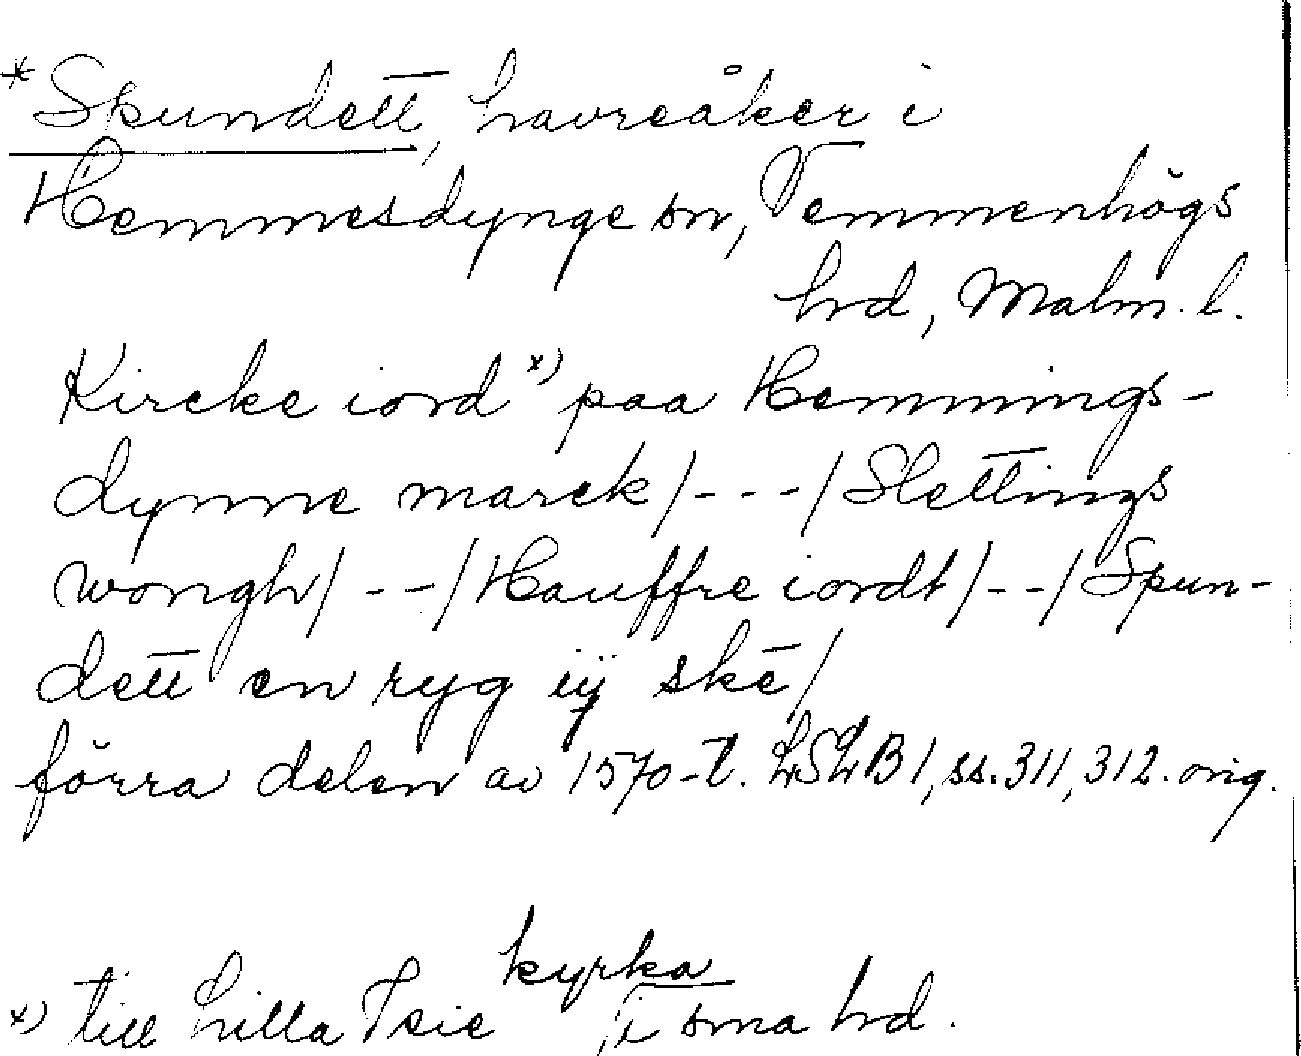 * Spundett, havreåker i
Hemmesdynge sn, Vemmenhögs
hrd, Malm. l.
Kircke iord x) paa Hemmings-
dynne marck/- - -/Slettings
wongh/- -/Hauffre iordt/- -/Spun-
dett en ryg iij ske/
förra delen av 1570-t. LSLB 1, ss. 311, 312. orig.
kyrka
x) till Lilla Isie , i sma hrd.